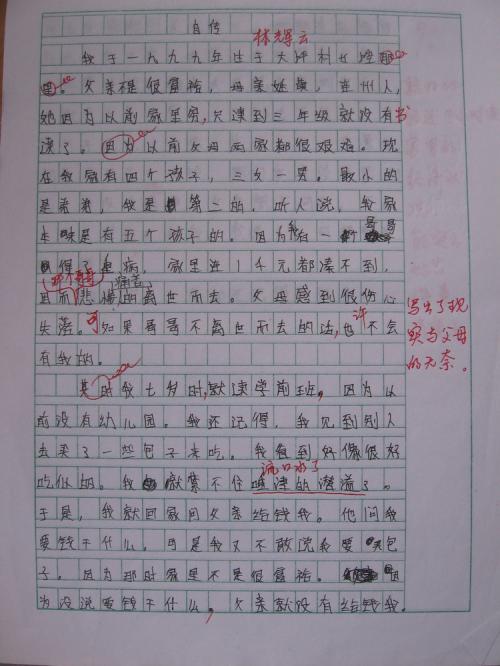 自传
林辉云
我于一九九九年生于大坪村
里。父亲不是很富裕，母亲姓黄，连州人，
她因为以前家里穷，只读到三年级就没有书
读了。因为以前父母两家都很艰难。现
在我家有四个孩子，三女一男。最小的
是弟弟，我是第二的。听人说，我家
本来是有五个孩子的。因为我有一个哥哥
得了重病，家里连1千元都凑不到，
那个哥哥
因而悲惨的离世而去。父母感到很伤心
失落。可如果哥哥不离世而去的话，也许不会
有我的。
写出了现
实与父母
的无奈。
时我七岁时，就读学前班。因为以
前没有幼儿园。我还记得，我见到别人
去买了一些包子来吃。我看到好像很好
流口水了
吃似的。我就禁不住 的潜溢了。
于是，我就回家问父亲给钱我。他问我
要钱干什么。可是我又不敢说我要买包
子。因为那时家里不是很富裕。因
为没说要钱干什么，父亲就没有给钱我。